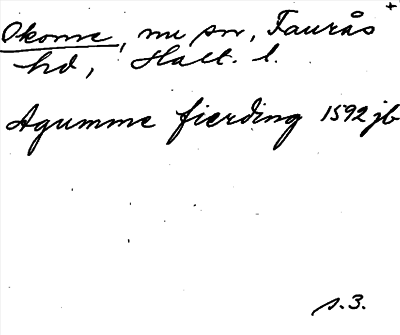 Okome, nu sn, Faurås +
hd, Hall. l.
Agumme fierding 1592 jb
s. 3.